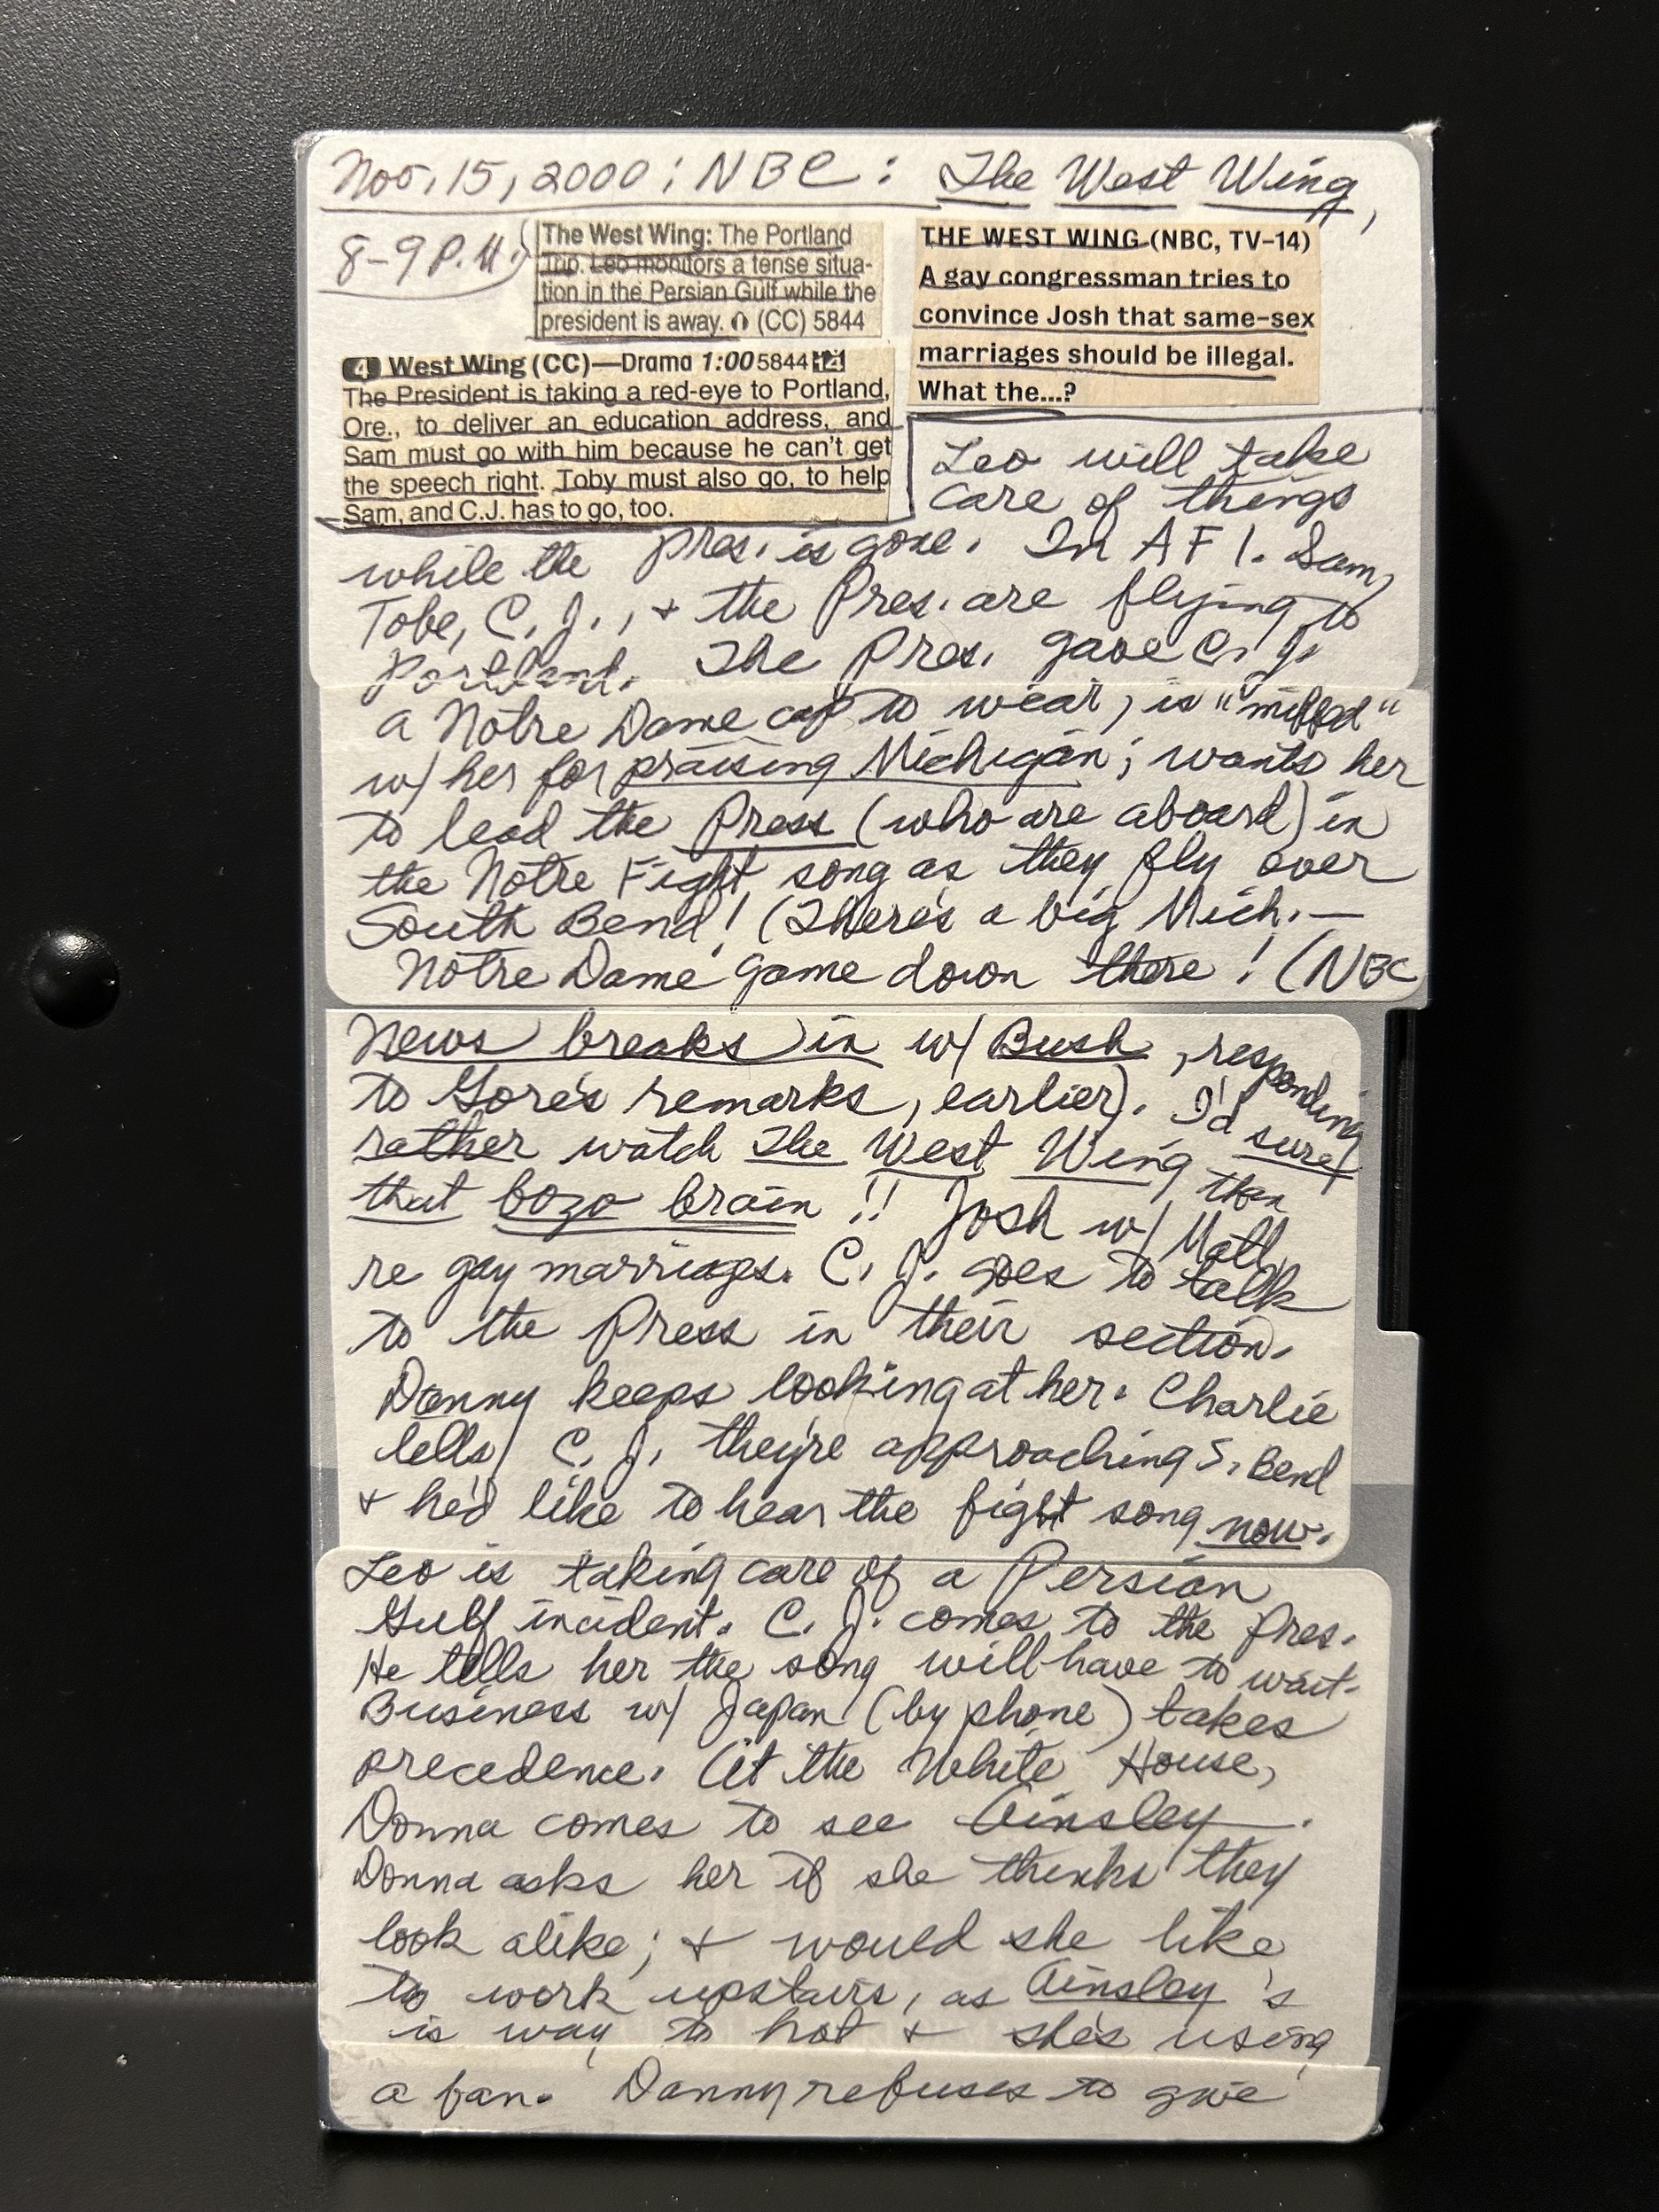 Nov. 15, 2000: NBC: The West Wing,
8-9 P.M.)
The West Wing: The Portland
Trip. Leo monitors a tense situa-
tion in the Persian Gulf while the
president is away. (CC) 5844
THE WEST WING (NBC, TV-14)
A gay congressman tries to
convince Josh that same-sex
marriages should be illegal.
What the...?
4 West Wing (CC)—Drama 1:00 5844 14
The President is taking a red-eye to Portland,
Ore., to deliver an education address, and
Sam must go with him because he can't get
the speech right. Toby must also go, to help
Sam, and C.J. has to go, too.
Leo will take
care of things
while the Pres. is gone. In AF 1. Sam,
Tobe, C. J., + the Pres. are flying to
Portland. The Pres. gave C. J.
a Notre Dame cap to wear, is "miffed"
w/ her for praising Michigan; wants her
to lead the Press (who are aboard) in
the Notre Fight song as they fly over
South Bend! (There's a big Mich.—
Notre Dame game down there! (NBC
News breaks in w/ Bush, responding
to Gore's remarks, earlier). I'd sure
rather watch The West Wing than
that bozo brain!! Josh w/ Matt,
re gay marriages. C. J. goes to talk
to the Press in their section.
Danny keeps looking at her. Charlie
tells C. J. they're approaching S. Bend
+ he'd like to hear the fight song now.
Leo is taking care of a Persian
Gulf incident. C. J. comes to the Pres.
He tells her the song will have to wait.
Business w/ Japan (by phone) takes
precedence. At the White House,
Donna comes to see Ainsley.
Donna asks her if she thinks they
look alike; + would she like
to work upstairs, as Ainsley's
is way to hot + she's using
a fan. Danny refuses to give